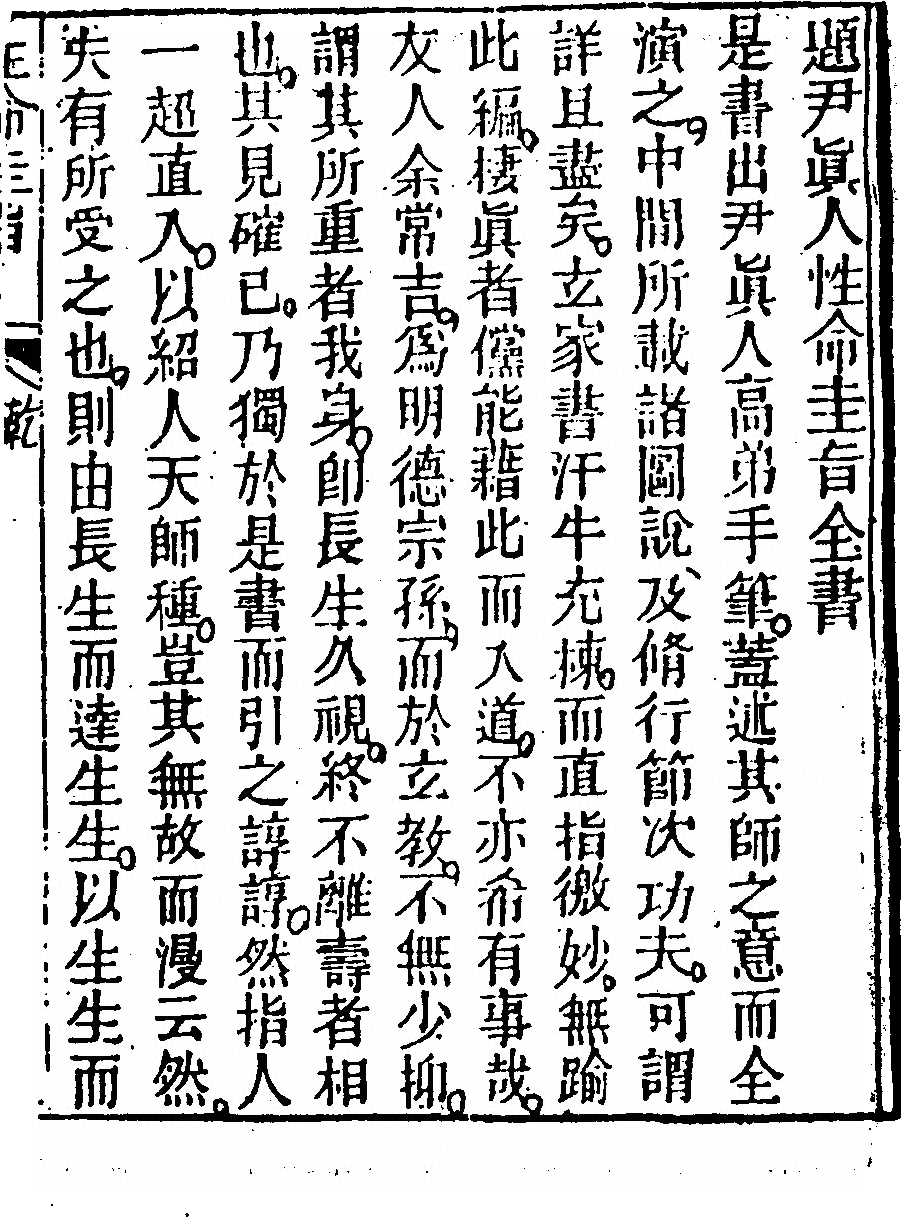 題尹眞人性命圭旨全書
是書出尹眞人高弟手筆。蓋述其師之意而全
演之。中間所載諸圖說及脩行節次功夫。可謂
詳且盡矣。玄家書汗牛充棟。而直指微妙。無踰
此編。棲眞者儻能藉此而入道。不亦希有事哉。
友人余常吉。爲明德宗孫。而於玄教。不無少抑。
謂其所重者我身。卽長生久視。終不離壽者相
也。其見確已。乃獨於是書而引之諄諄。然指人
一超直入。以紹人天師種。豈其無故而漫云然。
夫有所受之也。則由長生而達生生。以生生而
乾